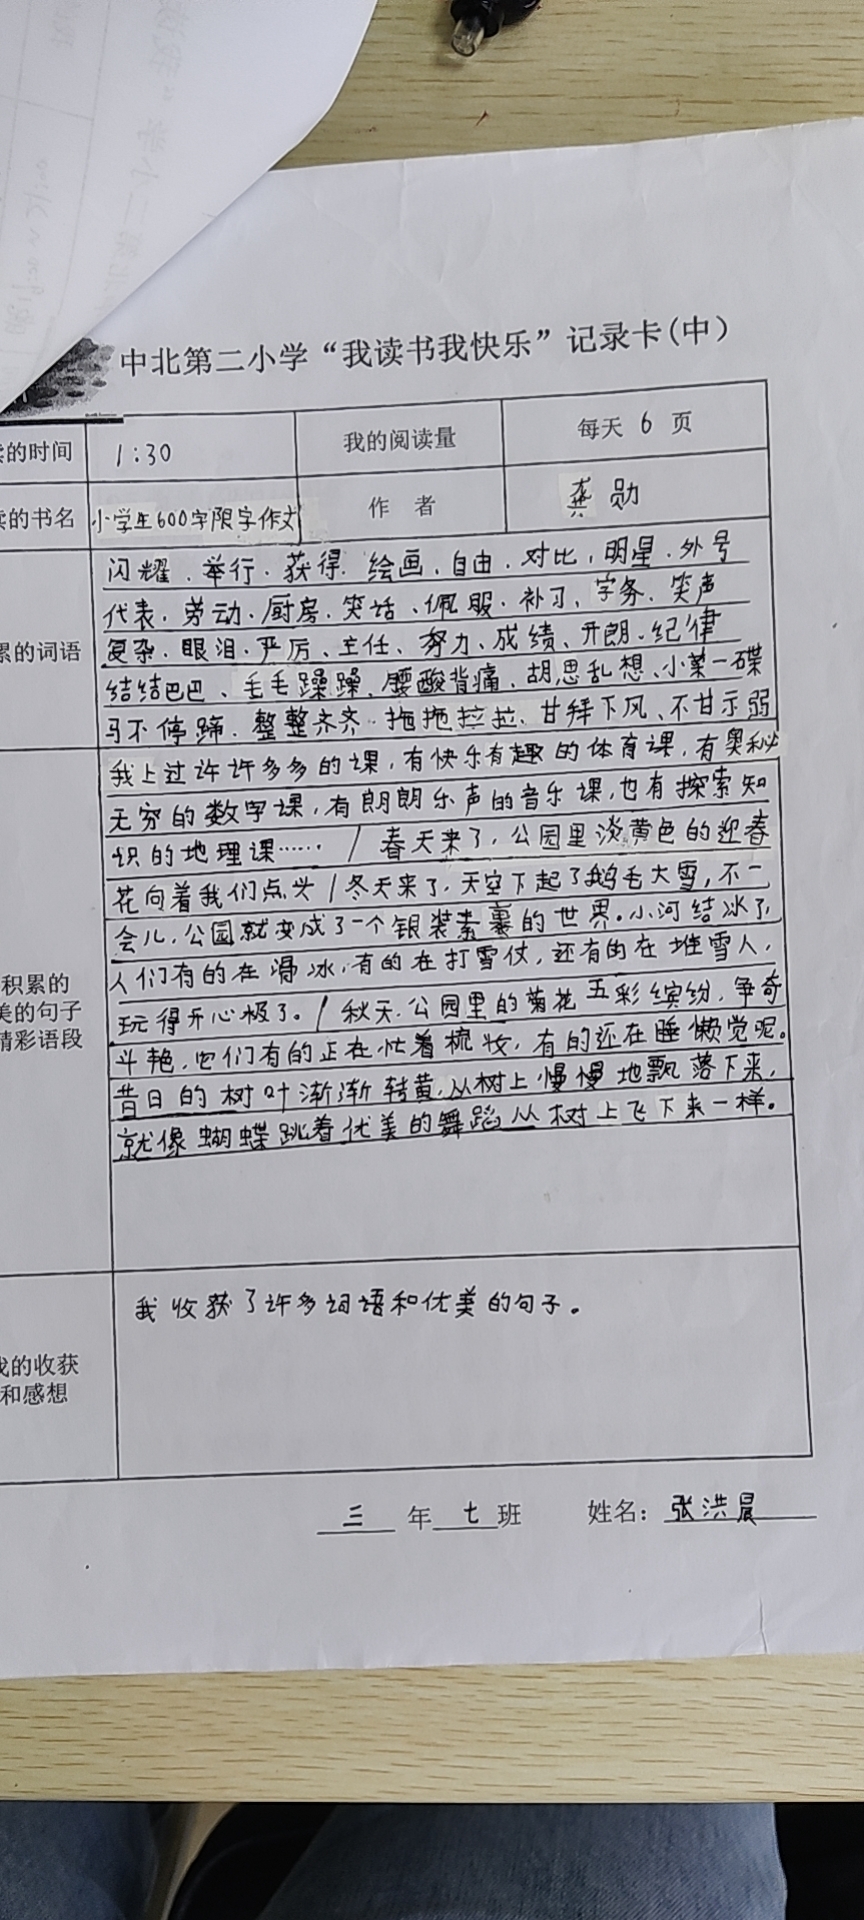 中北第二小学“我读书我快乐”记录卡(中)
的时间 1:30 我的阅读量 每天 6 页
读的书名 小学生600字限字作文 作 者 龚勋
闪耀、举行、获得、绘画、自由、对比、明星、外号
代表、劳动、厨房、笑话、佩服、补习、字务、笑声
累的词语 复杂、眼泪、严厉、主任、努力、成绩、开朗、纪律
结结巴巴、毛毛躁躁、腰酸背痛、胡思乱想、小菜一碟
马不停蹄、整整齐齐、拖拖拉拉、甘拜下风、不甘示弱
我上过许许多多的课,有快乐有趣的体育课,有奥秘
无穷的数字课,有朗朗乐声的音乐课,也有探索知
识的地理课…… / 春天来了,公园里淡黄色的迎春
花向着我们点头 / 冬天来了,天空下起了鹅毛大雪,不一
会儿,公园就变成了一个银装素裹的世界。小河结冰了,
积累的 人们有的在滑冰,有的在打雪仗,还有的在堆雪人,
美的句子 玩得开心极了。/ 秋天,公园里的菊花五彩缤纷,争奇
精彩语段 斗艳,它们有的正在忙着梳妆,有的还在睡懒觉呢。
昔日的树叶渐渐转黄,从树上慢慢地飘落下来,
就像蝴蝶跳着优美的舞蹈从树上飞下来一样。
我收获了许多词语和优美的句子。
我的收获
和感想
三 年 七 班 姓名: 张洪晨